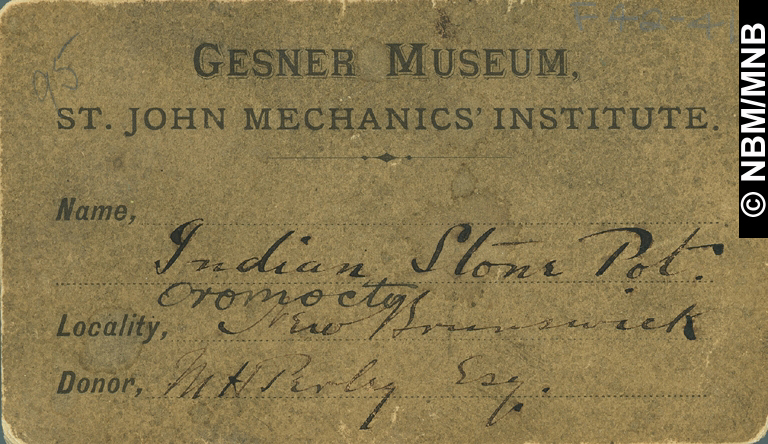 95
GESNER MUSEUM,
ST. JOHN MECHANICS' INSTITUTE.
Name,
Indian Stone Pot.
Oromocty
Locality, New Brunswick
Donor, M H Perley Esq.
© NBM/MNB